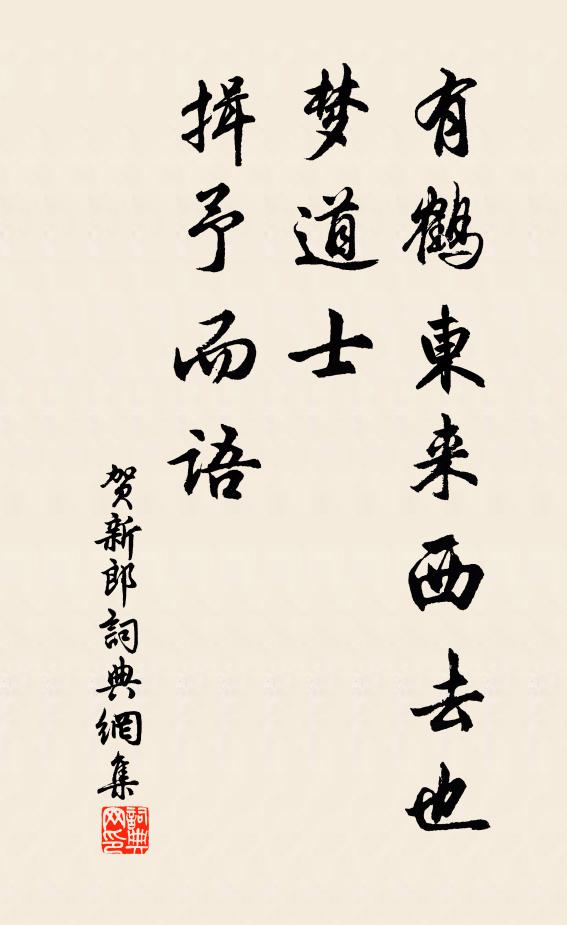 有鹤東来西去也
梦道士
揖予而语
贺新郎詞典網集
詞典
网印